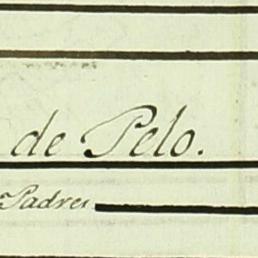 de Pelo.
Padres